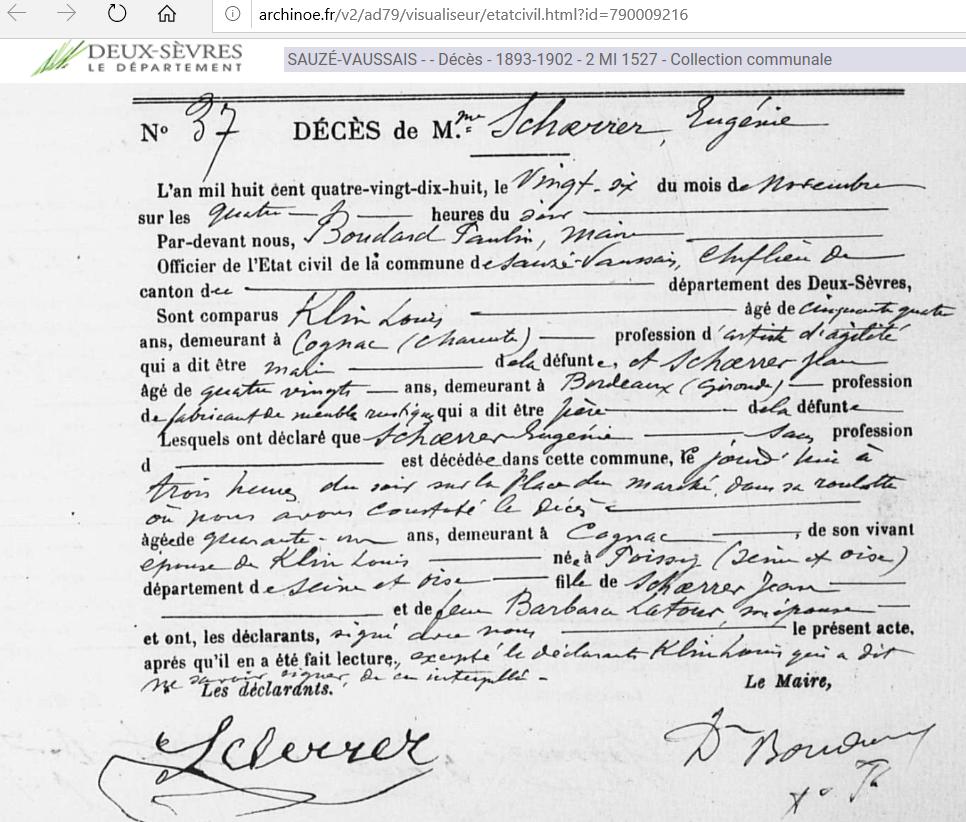 archinoe.fr/v2/ad79/visualiseur/etatcivil.html?id=790009216
DEUX-SÈVRES
LE DÉPARTEMENT
SAUZÉ-VAUSSAIS - - Décès - 1893-1902 - 2 MI 1527 - Collection communale
N° 37 DÉCÈS de M.me Schœrrer, Eugénie
L'an mil huit cent quatre-vingt-dix-huit, le Vingt-six du mois de Novembre
sur les quatre heures du soir
Par-devant nous, Boudard Paulin, maire
Officier de l'Etat civil de la commune de Sauzé-Vaussais, chef lieu de
canton du département des Deux-Sèvres,
Sont comparus Klin Louis âgé de cinquante quatre
ans, demeurant à Cognac (Charente) profession d'artiste d'agilité
qui a dit être mari de la défunte, et Schœrrer Jean
âgé de quatre vingts ans, demeurant à Bordeaux (Gironde) profession
de fabricant de meuble rustique qui a dit être père de la défunte
Lesquels ont déclaré que Schœrrer Eugénie, sans profession
d est décédée dans cette commune, le jourd'hui à
trois heures du soir sur la Place du marché, dans sa roulotte
où nous avons constaté le décès
âgée de quarante-un ans, demeurant à Cognac, de son vivant
épouse de Klin Louis née à Poissy (Seine et oise)
département de Seine et oise fille de Schœrrer Jean
et de feue Barbara Latour, son épouse
et ont, les déclarants, signé avec nous le présent acte,
après qu'il en a été fait lecture, excepté le déclarant Klin Louis qui a dit
ne savoir signer, de ce interpellé -
Les déclarants. Le Maire,
Scherrer Dr Boudard